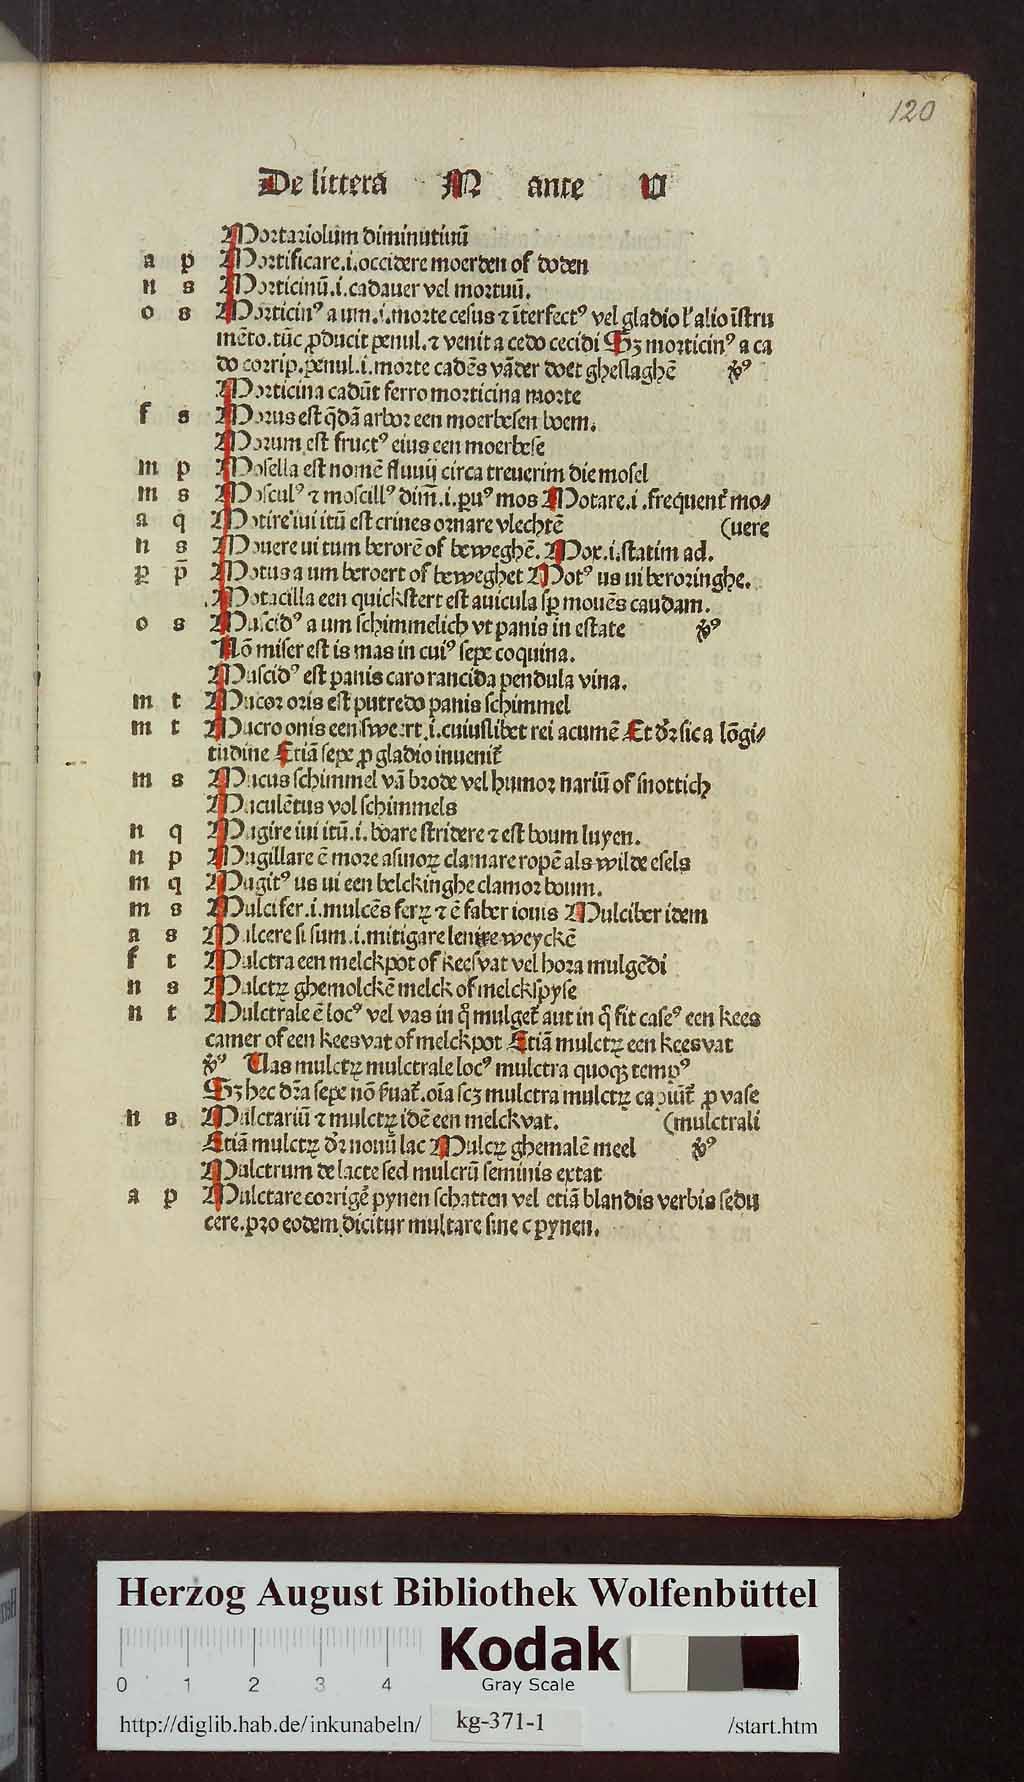 120
De littera M ante U
Mortariolum diminutiuū
a p Mortificare.i.occidere moerden of doden
n s Morticinū.i.cadauer vel mortuū.
o s Morticinꝰ a um.i.morte cesus ⁊ īterfectꝰ vel gladio lˀ alio īstru
mēto.tūc ꝓducit penul.⁊ venit a cedo cecidi Sꝫ morticinꝰ a ca
do corrip.penul.i.morte cadēs vāder doet gheslaghē v̄ꝰ
Morticina cadūt ferro morticina morte
f s Morus est q̄dā arbor een moerbesen boem.
Morum est fructꝰ eius een moerbese
m p Mosella est nomē fluuij circa treuerim die mosel
m s Mosculꝰ ⁊ moscillꝰ dim̄.i.ꝑuꝰ mos Motare.i.frequent̄ mo⸗
a q Motire iui itū est crines ornare vlechtē (uere
n s Mouere ui tum berorē of beweghē. Mox.i.statim ad.
ꝑ p̄ Motus a um beroert of beweghet Motꝰ us ui beroringhe.
Motacilla een quickstert est auicula sꝑ mouēs caudam.
o s Muscidꝰ a um schimmelich vt panis in estate v̄ꝰ
Nō miser est is mas in cuiꝰ sepe coquina.
Muscidꝰ est panis caro rancida pendula vina.
m t Mucor oris est putredo panis schimmel
m t Mucro onis een swert.i.cuiuslibet rei acumē Et dr̄ sic a lōgi⸗
tudine Etiā sepe ꝓ gladio inuenit̄
m s Mucus schimmel vā brode vel humor nariū of snottich
Muculētus vol schimmels
n q Mugire iui itū.i.boare stridere ⁊ est boum luyen.
n p Mugillare ē more asinoꝝ clamare ropē als wilde esels
m q Mugitꝰ us ui een belckinghe clamor boum.
m s Mulcifer.i.mulcēs feꝝ ⁊ ē faber iouis Mulciber idem
a s Mulcere si sum.i.mitigare lenire weyckē
f t Mulctra een melckpot of keesvat vel hora mulgēdi
n s Mulctꝝ ghemolckē melck of melckspyse
n t Mulctrale ē locꝰ vel vas in q̊ mulget̄ aut in q̊ fit caseꝰ een kees
camer of een keesvat of melckpot Etiā mulctꝝ een keesvat
v̄ꝰ Uas mulctꝝ mulctrale locꝰ mulctra quoqꝫ tempꝰ
Sꝫ hec dr̄a sepe nō ẜuat̄.oīa scꝫ mulctra mulctꝝ capiūt̄ ꝓ vase
n s Mulctariū ⁊ mulctꝝ idē een melckvat. (mulctrali
Etiā mulctꝝ dr̄ nouū lac Mulcꝝ ghemalē meel v̄ꝰ
Mulctrum de lacte sed mulcrū seminis extat
a p Mulctare corrigē pynen schatten vel etiā blandis verbis sedu
cere.pro eodem dicitur multare sine c pynen.
Herzog August Bibliothek Wolfenbüttel
Kodak
Gray Scale
0 1 2 3 4
http://diglib.hab.de/inkunabeln/ kg-371-1 /start.htm